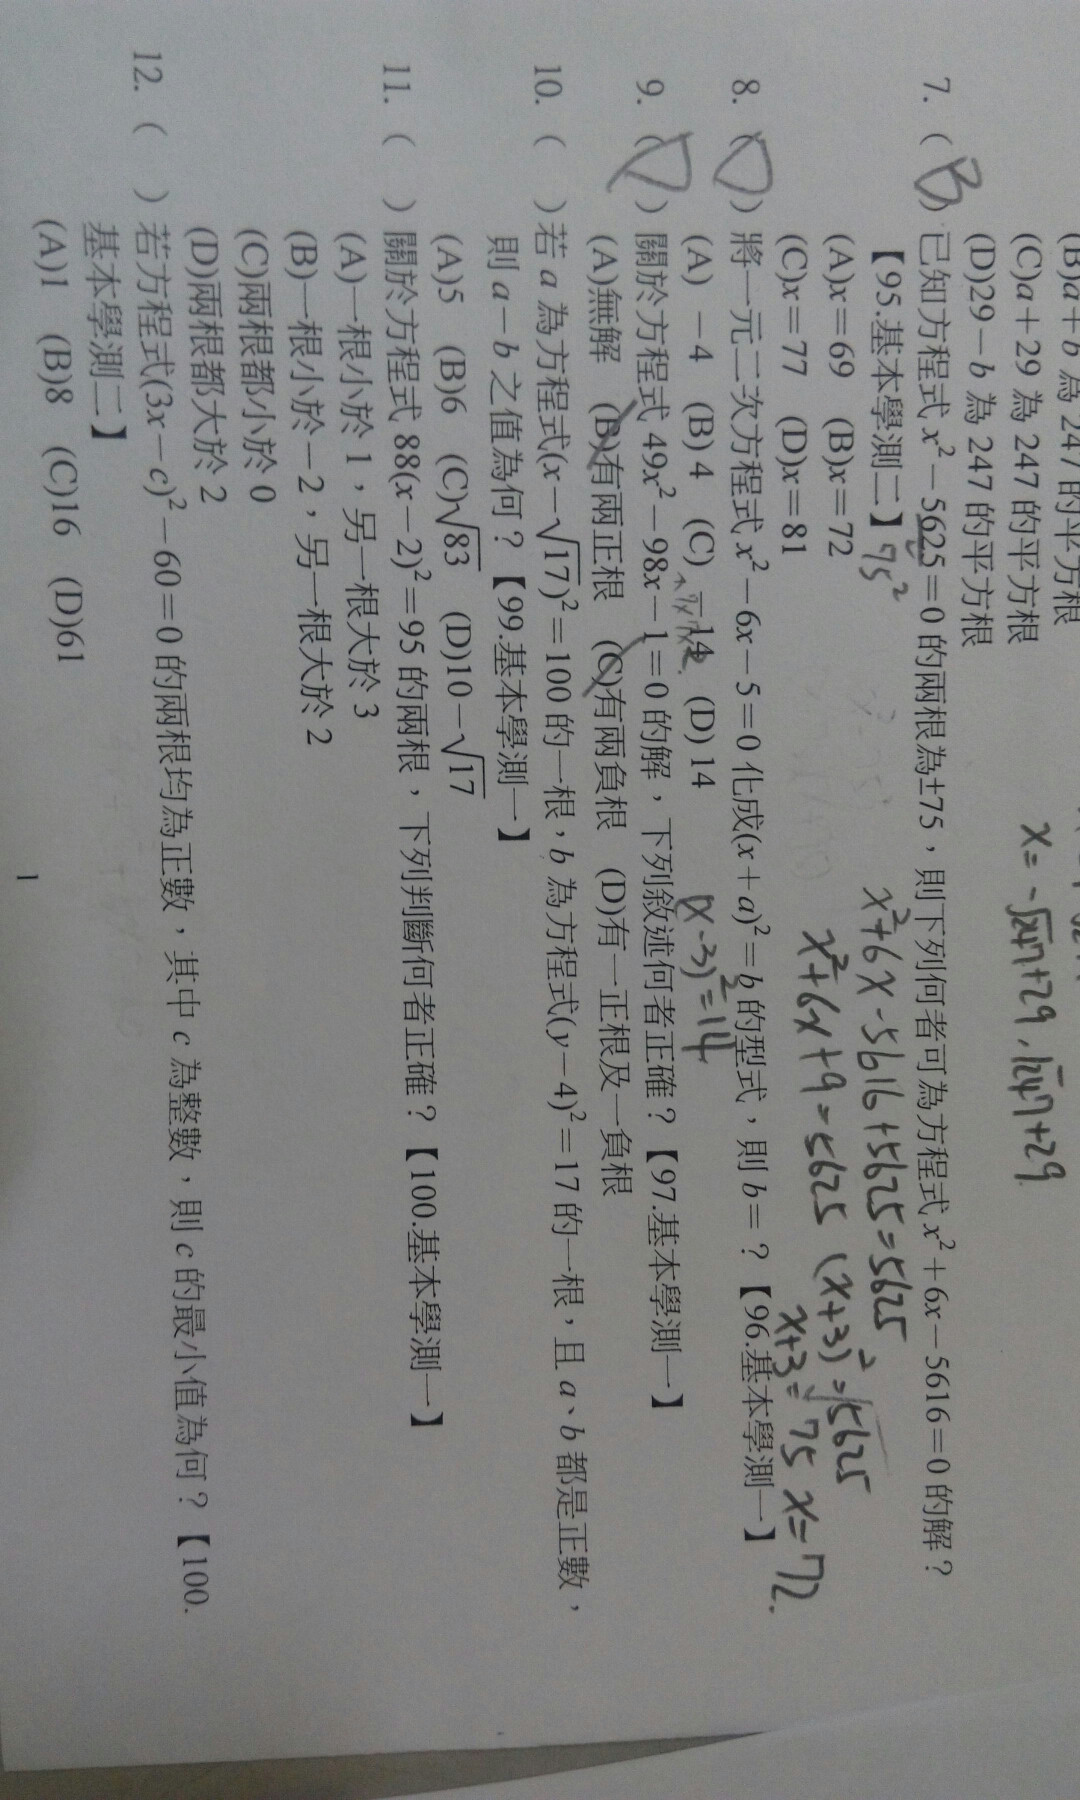 (B)a＋b 為 247 的平方根
(C)a＋29 為 247 的平方根
(D)29－b 為 247 的平方根
x = -√247+29 , √247+29
7. ( B ) 已知方程式 x²－5625＝0 的兩根為±75，則下列何者可為方程式 x²＋6x－5616＝0 的解？
【95.基本學測二】 75²
(A)x＝69 (B)x＝72
(C)x＝77 (D)x＝81
x²+6x-5616+5625=5625
x²+6x+9=5625 (x+3)²=√5625
x+3=75 x=72.
8. ( D ) 將一元二次方程式 x²－6x－5＝0 化成(x＋a)²＝b 的型式，則 b＝？【96.基本學測一】
(A) －4 (B) 4 (C) －14 (D) 14
(x-3)²=14
9. ( D ) 關於方程式 49x²－98x－1＝0 的解，下列敘述何者正確？【97.基本學測一】
(A)無解 (B)有兩正根 (C)有兩負根 (D)有一正根及一負根
10. ( ) 若 a 為方程式(x－√17)²＝100 的一根，b 為方程式(y－4)²＝17 的一根，且 a、b 都是正數，
則 a－b 之值為何？【99.基本學測一】
(A)5 (B)6 (C)√83 (D)10－√17
11. ( ) 關於方程式 88(x－2)²＝95 的兩根，下列判斷何者正確？【100.基本學測一】
(A)一根小於 1，另一根大於 3
(B)一根小於－2，另一根大於 2
(C)兩根都小於 0
(D)兩根都大於 2
12. ( ) 若方程式(3x－c)²－60＝0 的兩根均為正數，其中 c 為整數，則 c 的最小值為何？【100.
基本學測二】
(A)1 (B)8 (C)16 (D)61
1